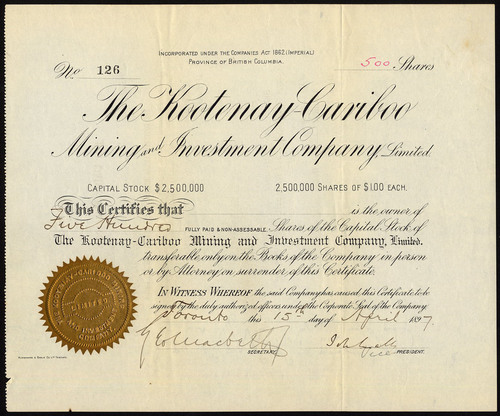 INCORPORATED UNDER THE COMPANIES ACT 1862 (IMPERIAL)
PROVINCE OF BRITISH COLUMBIA.
No 126
500 Shares
The Kootenay-Cariboo
Mining and Investment Company, Limited
CAPITAL STOCK $2,500,000
2,500,000 SHARES OF $1.00 EACH.
This Certifies that is the owner of
Five Hundred FULLY PAID & NON-ASSESSABLE Shares of the Capital Stock of
The Kootenay-Cariboo Mining and Investment Company, Limited.
transferable only on the Books of the Company in person
or by Attorney on surrender of this Certificate.
IN WITNESS WHEREOF the said Company has caused this Certificate to be
signed by the duly authorized officers under the Corporate Seal of the Company
Toronto this 15th day of April 1897
SECRETARY
Vice PRESIDENT.
THE KOOTENAY-CARIBOO MINING
AND INVESTMENT COMPANY
LIMITED